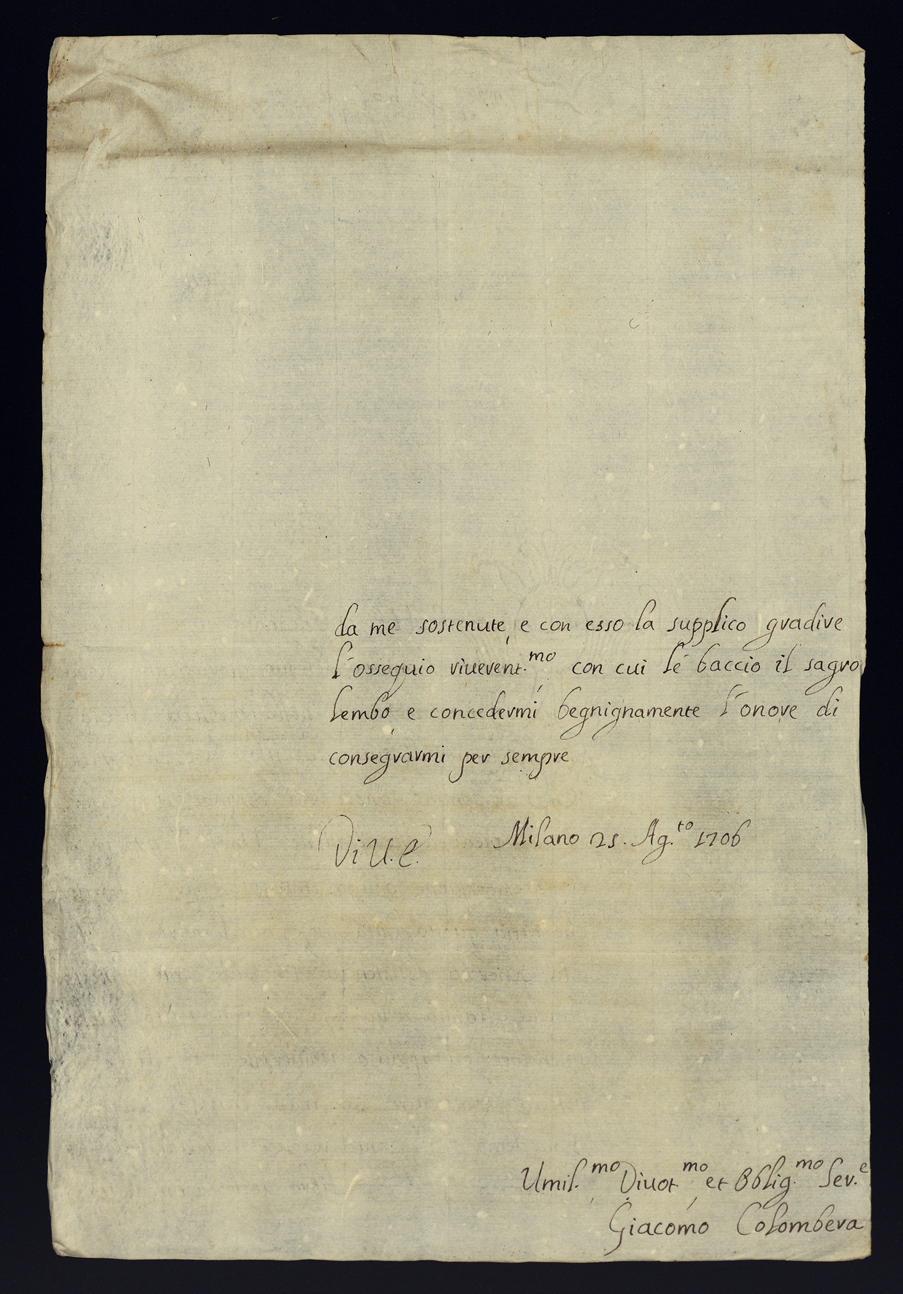 da me sostenute, e con esso la supplico gradire
l'ossequio riuerent.mo con cui le baccio il sagro
lembo e concedermi begnignamente l'onore di
consegrarmi per sempre
Di V. E. Milano 25. Ag.to 1706
Umil.mo Diuot.mo et Oblig.mo Ser.e
Giacomo Colombera